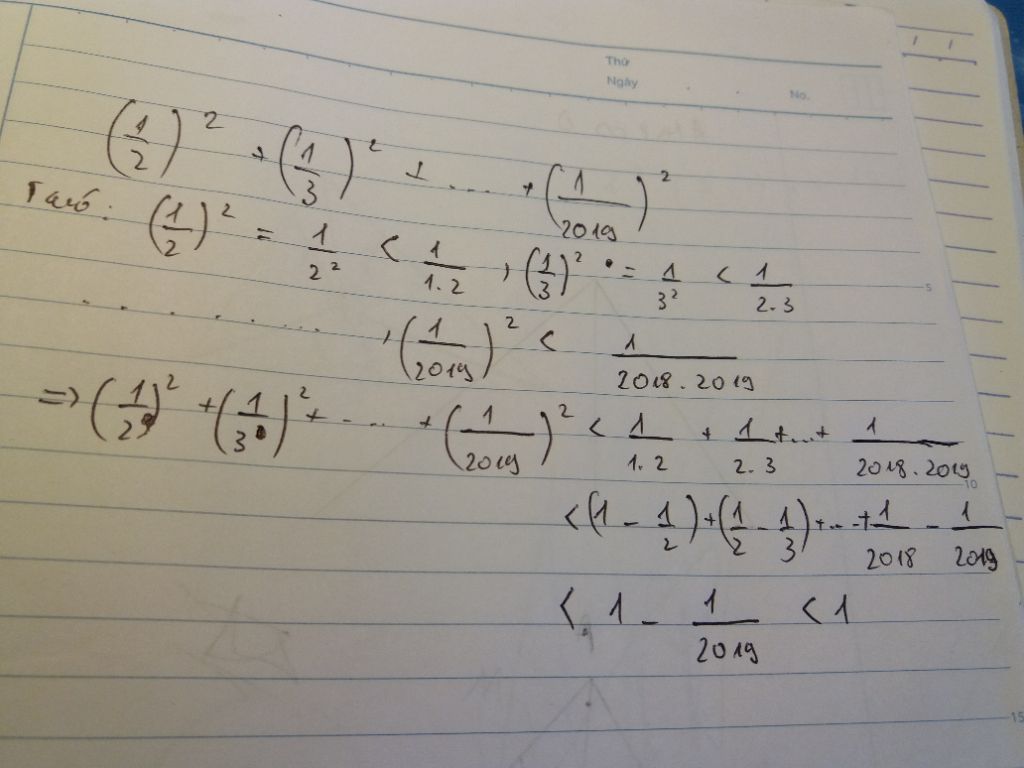 Thứ
Ngày
No.
(1/2)² + (1/3)² + .... + (1/2019)²
Ta có: (1/2)² = 1/2² < 1/1.2 , (1/3)² = 1/3² < 1/2.3
. . . . . . . . . , (1/2019)² < 1/2018.2019
=> (1/2)² + (1/3)² + .... + (1/2019)² < 1/1.2 + 1/2.3 +...+ 1/2018.2019
< (1 - 1/2) + (1/2 - 1/3) + ... + 1/2018 - 1/2019
< 1 - 1/2019 < 1
5
10
15